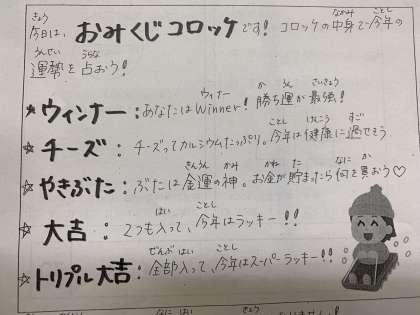 今日は、おみくじコロッケです！コロッケの中身で今年の
運勢を占おう！
★ウィンナー：あなたはWinner！勝ち運が最強！
☆チーズ：チーズってカルシウムたっぷり。今年は健康に過ごせそう
☆やきぶた：ぶたは金運の神。お金が貯まったら何を買おう♡
☆大吉：2つも入って、今年はラッキー！！
☆トリプル大吉：全部入って、今年はスーパーラッキー！！